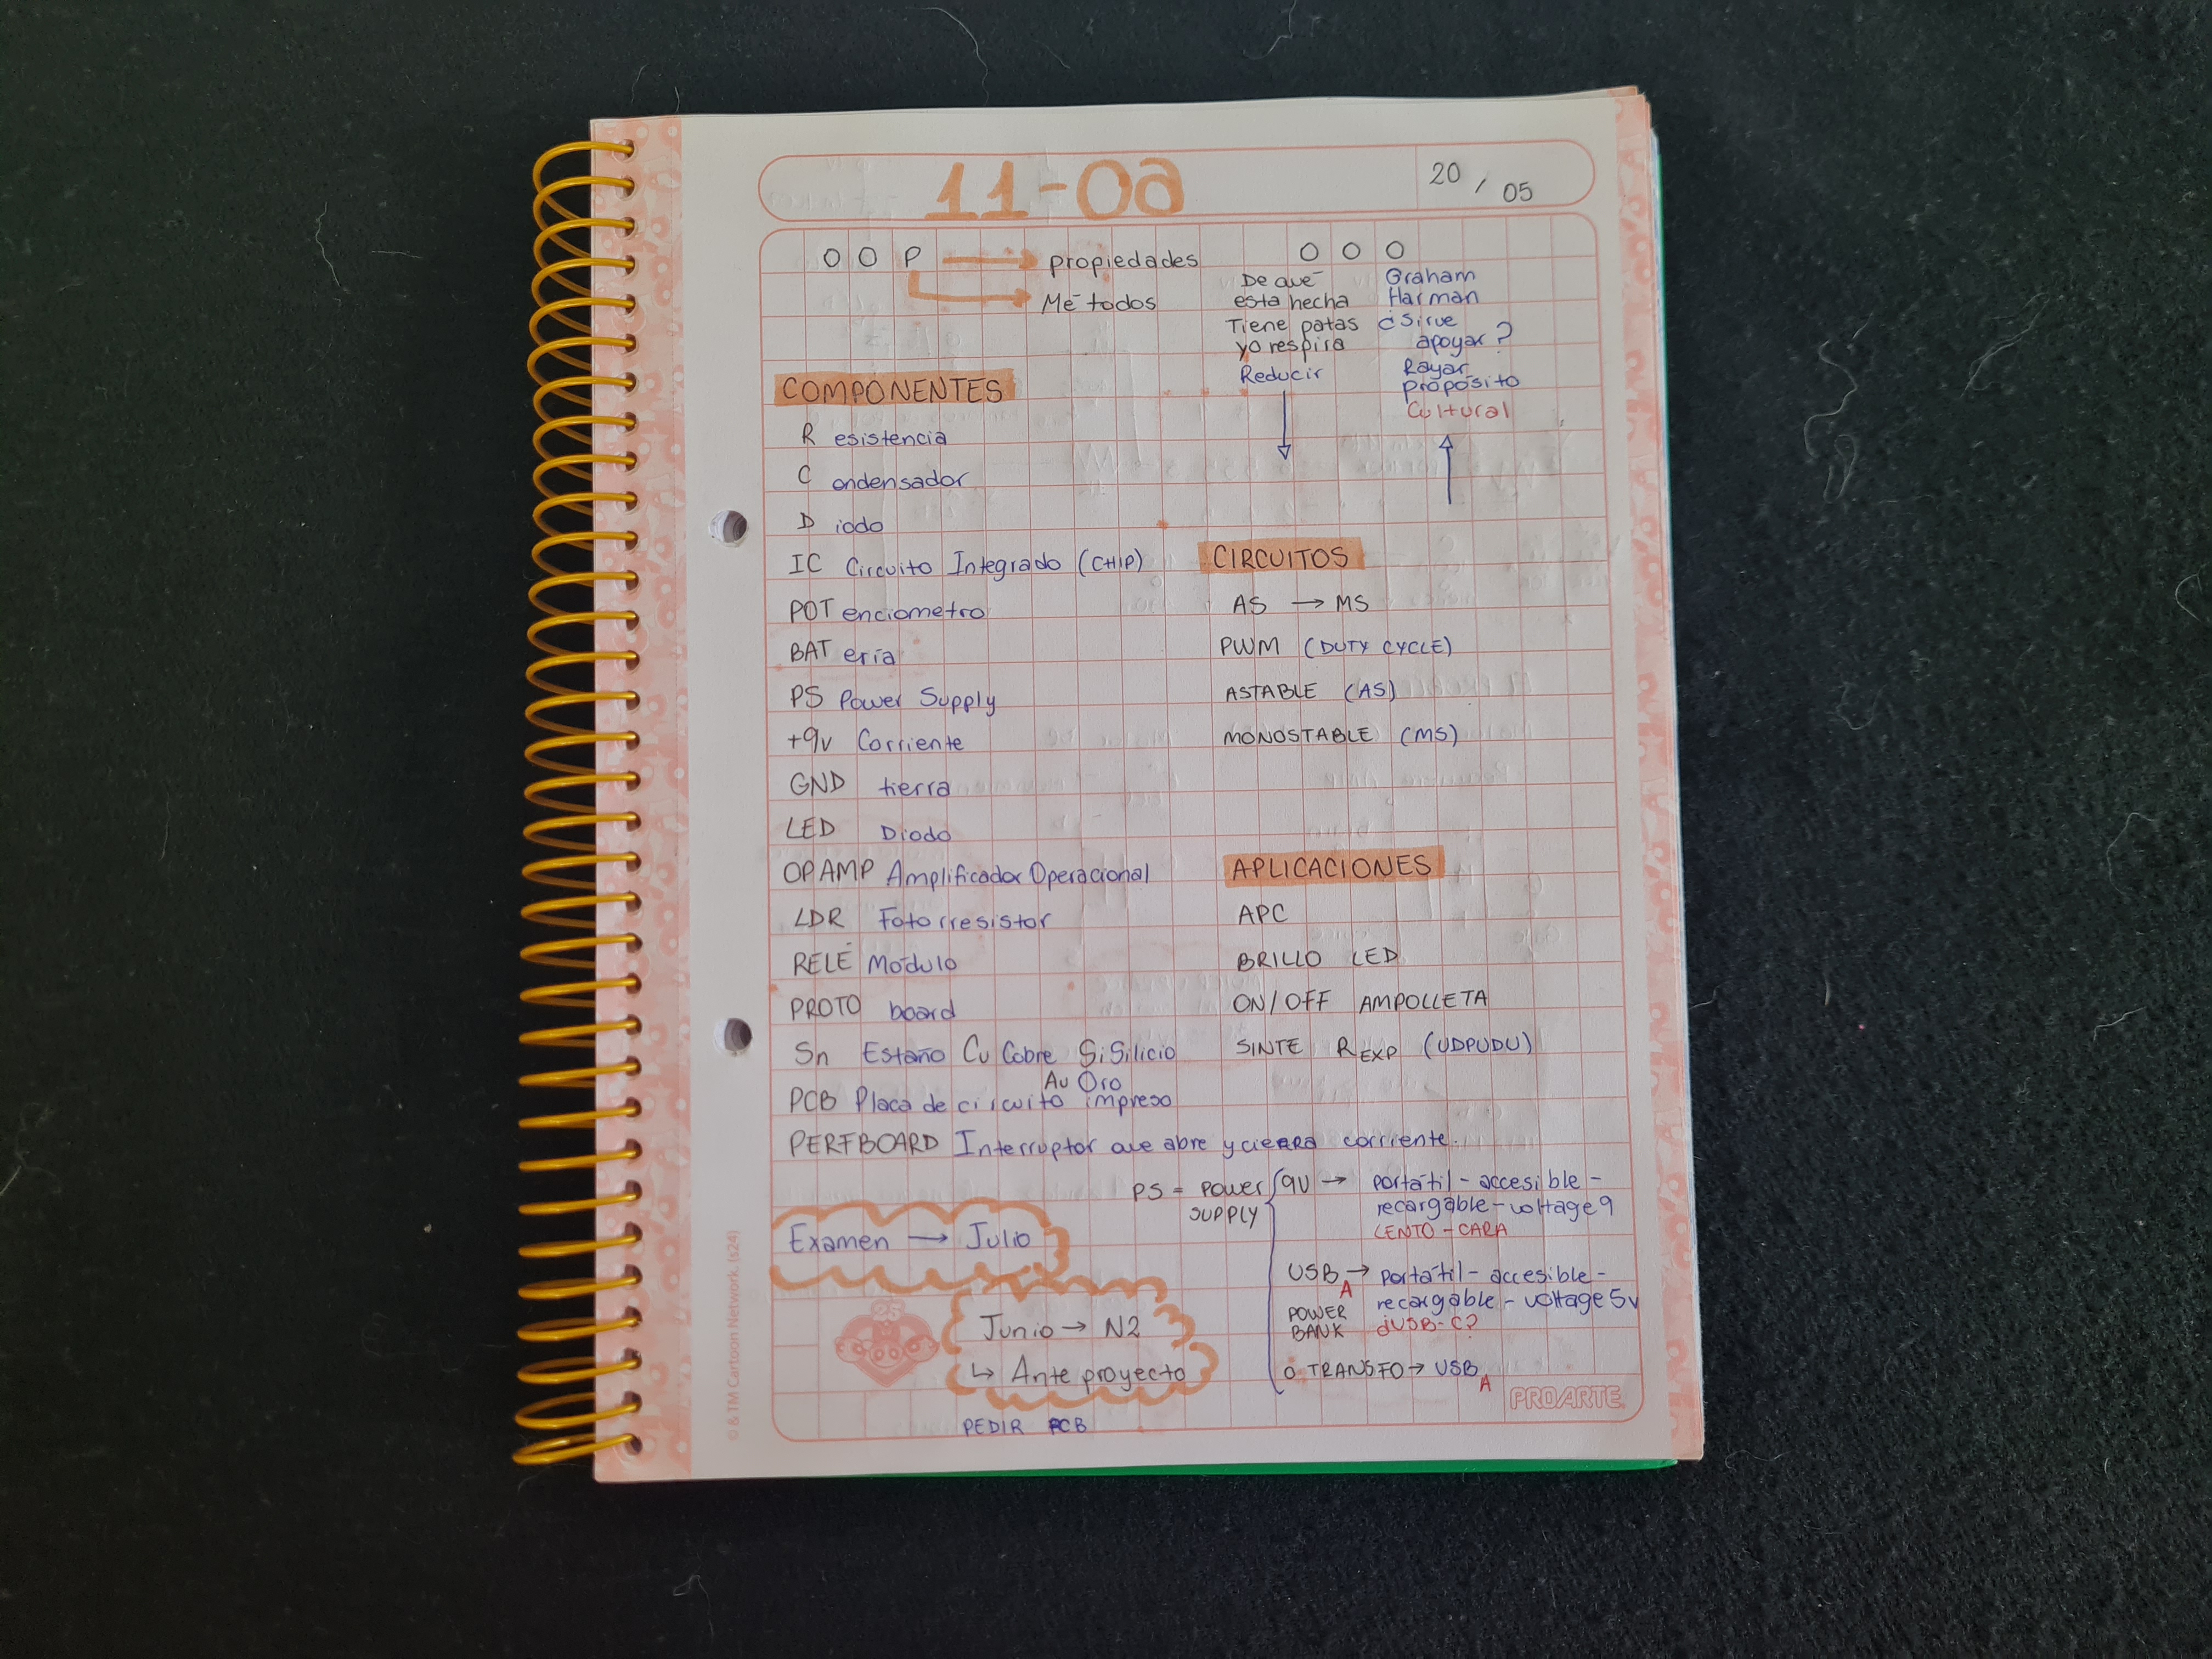 11-0a
20 / 05
OOP → propiedades
→ Métodos
OOO
De que
esta hecha
Tiene patas
yo respira
Reducir
Graham
Harman
¿Sirve
apoyar?
Rayar
propósito
Cultural
COMPONENTES
R esistencia
C ondensador
D iodo
IC Circuito Integrado (CHIP)
POT enciometro
BAT ería
PS Power Supply
+9v Corriente
GND tierra
LED Diodo
OPAMP Amplificador Operacional
LDR Fotorresistor
RELÉ Módulo
PROTO board
Sn Estaño Cu Cobre Si Silicio
Au Oro
PCB Placa de circuito impreso
PERFBOARD Interruptor que abre y cierra corriente.
CIRCUITOS
AS → MS
PWM (DUTY CYCLE)
ASTABLE (AS)
MONOSTABLE (MS)
APLICACIONES
APC
BRILLO LED
ON/OFF AMPOLLETA
SINTE R EXP (UDPUDU)
PS = POWER SUPPLY
9V → portátil - accesible -
recargable - voltage 9
LENTO - CARA
USB A → portátil - accesible -
POWER BANK recargable - voltage 5v
¿USB-C?
ó TRANSFO → USB A
Examen → Julio
Junio → N2
↳ Ante proyecto
PEDIR PCB
PROARTE
© & TM Cartoon Network. (s24)